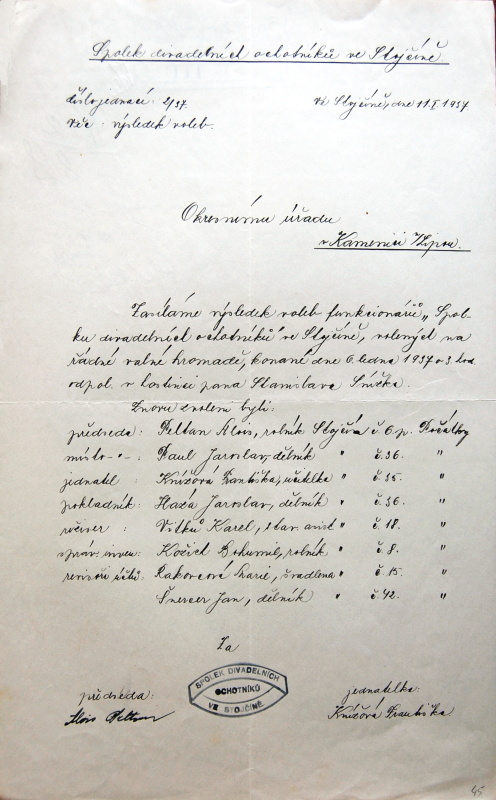 Spolek divadelních ochotníků ve Stojčíně
číslo jednací: 2/37 ve Stojčíně, dne 11./I. 1937
Věc: výsledek voleb.
Okresnímu úřadu
v Kamenici n/Lipou.
Zasíláme výsledek voleb funkcionářů „Spol-
ku divadelních ochotníků" ve Stojčíně, volených na
řádné valné hromadě, konané dne 6. ledna 1937 o 3. hod
odpol. v hostinci pana Stanislava
Znovu zvoleni byli:
předseda: Peltan Alois, rolník Stojčín č. 6 p. Počátky
místo-"- Paul Jaroslav, dělník " č. 36. "
jednatel: Křížová Františka, učitelka " č. 35. "
pokladník: Jaroslav, dělník " č. 36. "
Vítků Karel, stav. asist " č. 18. "
správ. inven: Bohumil, rolník " č. 8. "
revisoři účtů: Rakovcová Marie, švadlena " č. 15. "
Jan, dělník " č. 42. "
Za
SPOLEK DIVADELNÍCH
OCHOTNÍKŮ
VE STOJČÍNĚ
předseda: jednatelka:
Alois Peltan Křížová Františka
45